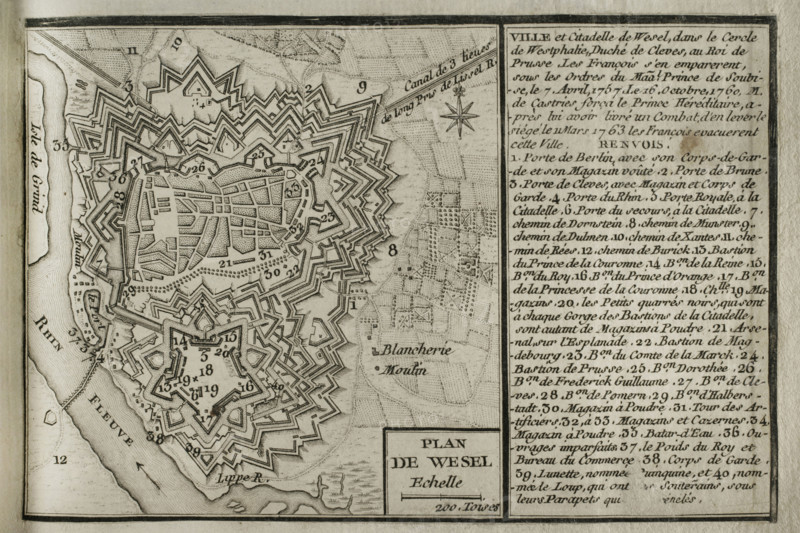 VILLE et Citadelle de Wesel, dans le Cercle
de Westphalie, Duché de Cleves, au Roi de
Prusse. Les François s'en emparerent,
sous les Ordres du Maal Prince de Soubi-
-se, le 7. Avril, 1757. Le 16. Octobre, 1760, M.
de Castries, força le Prince Héréditaire, a-
près lui avoir livré un Combat, d'en lever le
siége. le 11 Mars 1763. les François evacuerent
cette Ville.
RENVOIS.
1. Porte de Berlin, avec son Corps-de-Gar-
de et son Magazin voûté. 2. Porte de Brune.
3. Porte de Cleves, avec Magazin et Corps de
Garde. 4. Porte du Rhin. 5. Porte Royale, à la
Citadelle. 6. Porte du secours, à la Citadelle. 7.
chemin de Dornstein. 8. chemin de Munster. 9.
chemin de Dulmen. 10. chemin de Xantes. 11. che-
min de Rées. 12. chemin de Burick. 13. Bastion
du Prince de la Couronne. 14. Bon de la Reine. 15.
Bon du Roy. 16. Bon du Prince d'Orange. 17. Bon
de la Princesse de la Couronne. 18. Chlle 19. Ma-
gazins. 20. les Petits quarrés noirs, qui sont
à chaque Gorge des Bastions de la Citadelle,
sont autant de Magazins à Poudre. 21. Arse-
nal, sur l'Esplanade. 22. Bastion de Mag-
debourg. 23. Bon du Comte de la Marck. 24.
Bastion de Prusse. 25. Bon Dorothée. 26.
Bon de Frederick Guillaume. 27. Bon de Cle-
ves. 28. Bon de Pomern. 29. Bon d'Halbers-
-tadt. 30. Magazin à Poudre. 31. Tour des Ar-
tificiers. 32, à 33. Magazins et Cazernes. 34.
Magazin à Poudre. 35. Batar-d'Eau. 36. Ou-
vrages imparfaits. 37. le Poids du Roy et
Bureau du Commerce 38. Corps de Garde.
39. Lunette, nommée et 40, nom-
-mée le Loup, qui ont Souterains, sous
leurs Parapets qui
Canal de 3 lieues
de long Pris de Lissel R.
Isle de Grind
Moulin
le Port
RHIN
FLEUVE
Lippe R.
Blancherie
Moulin
PLAN
DE WESEL
Echelle
200. Toises
11
10
3
2
9
35
8
1
12
38
39
37
34
36
26
25
27
24
28
33
23
32
22
21
31
30
29
14
13
5
20
18
19
15
17
16
6
40